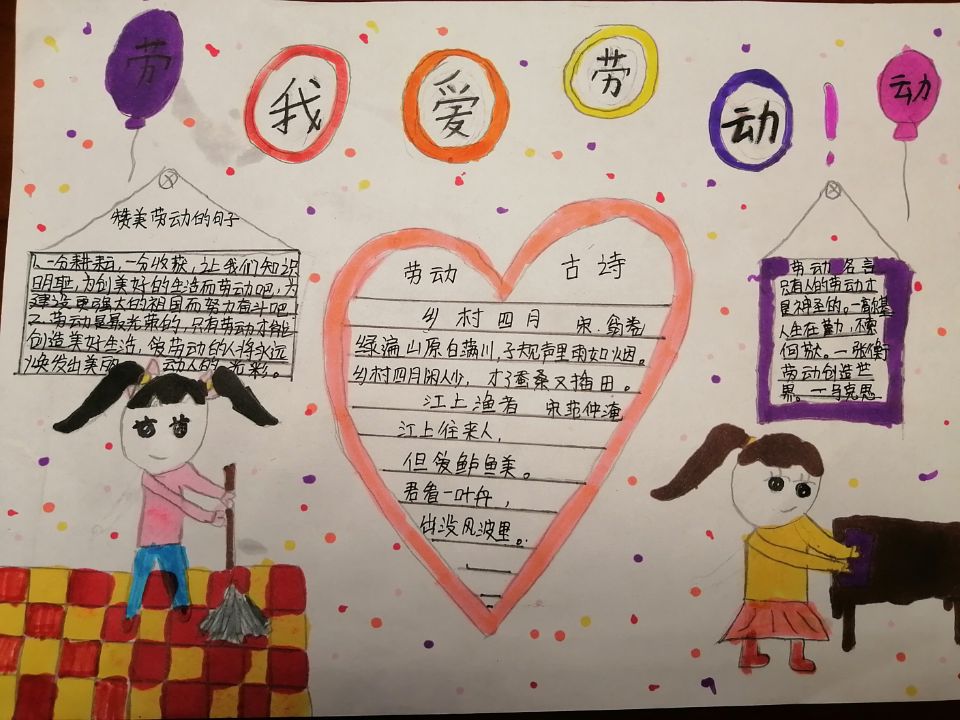 劳
我爱劳动！
动
赞美劳动的句子
1、一分耕耘，一分收获，让我们知识
明耻，为创美好的生活而劳动吧，为
建设更强大的祖国而努力奋斗吧！
2、劳动是最光荣的，只有劳动才能
创造美好生活，爱劳动的人将永远
焕发出美丽 动人的光彩。
劳动 古诗
乡村四月 宋.翁卷
绿遍山原白满川，子规声里雨如烟。
乡村四月闲人少，才了蚕桑又插田。
江上渔者 宋范仲淹
江上往来人，
但爱鲈鱼美。
君看一叶舟，
出没风波里。
劳动名言
只有人的劳动才
是神圣的。一高尔基
人生在勤，不索
何获。一张衡
劳动创造世
界。一马克思